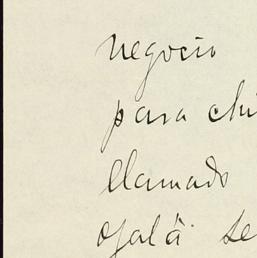 negocio
para chi
llamado
ojalá se